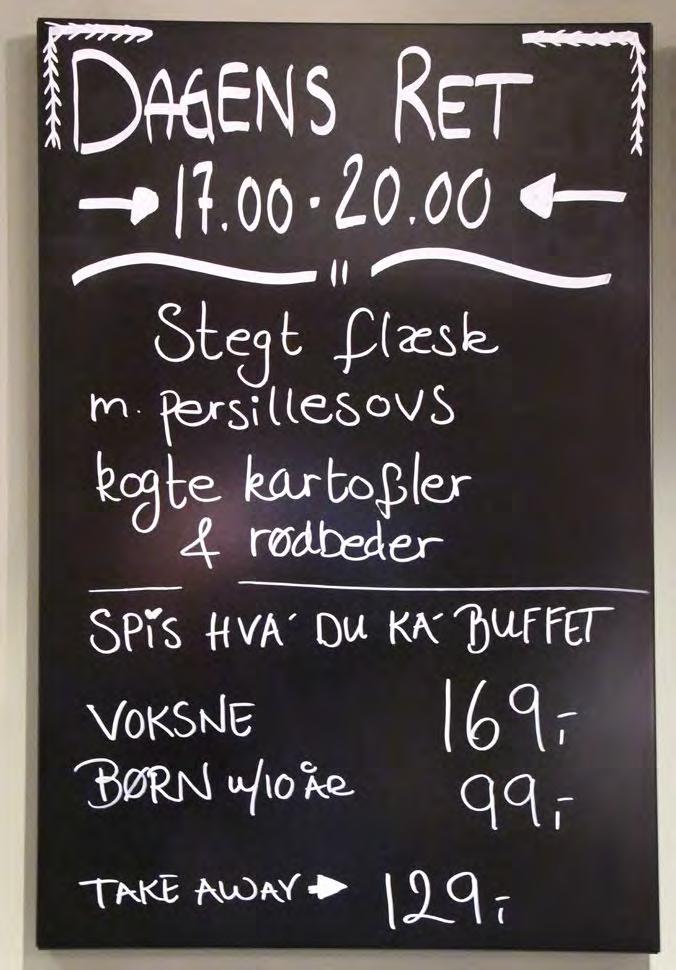 DAGENS RET
17.00 - 20.00
Stegt flæsk
m. persillesovs
kogte kartofler
& rødbeder
SPiS HVA' DU KA' BUFFET
VOKSNE 169,-
BØRN u/10 ÅR 99,-
TAKE AWAY → 129,-